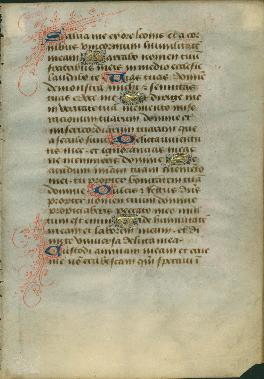 Salua me ex ore leonis et a cor
nibus unicornium humilitate
meam Narrabo nomen tuu
fratribus meis in medio ecclesie
laudabo te Uias tuas domine
demonstra michi et semitas
tuas edoce me Dirige me
in veritate tua
miseracionum tuarum domine et
misericordiarum tuarum que
a seculo sunt Delicta iuuentu
tis mee et ignorancias meas
ne memineris domine Secundum
misericordiam tuam memento
mei tu propter bonitatem tua
domine Dulcis et rectus
propter nomen tuum domine
propiciaberis peccato meo mul
tum est enim Uide humilitate
meam et laborem meum et di
mitte universa delicta mea
Custodi animam meam et erue
me no erubescam qm speraui i